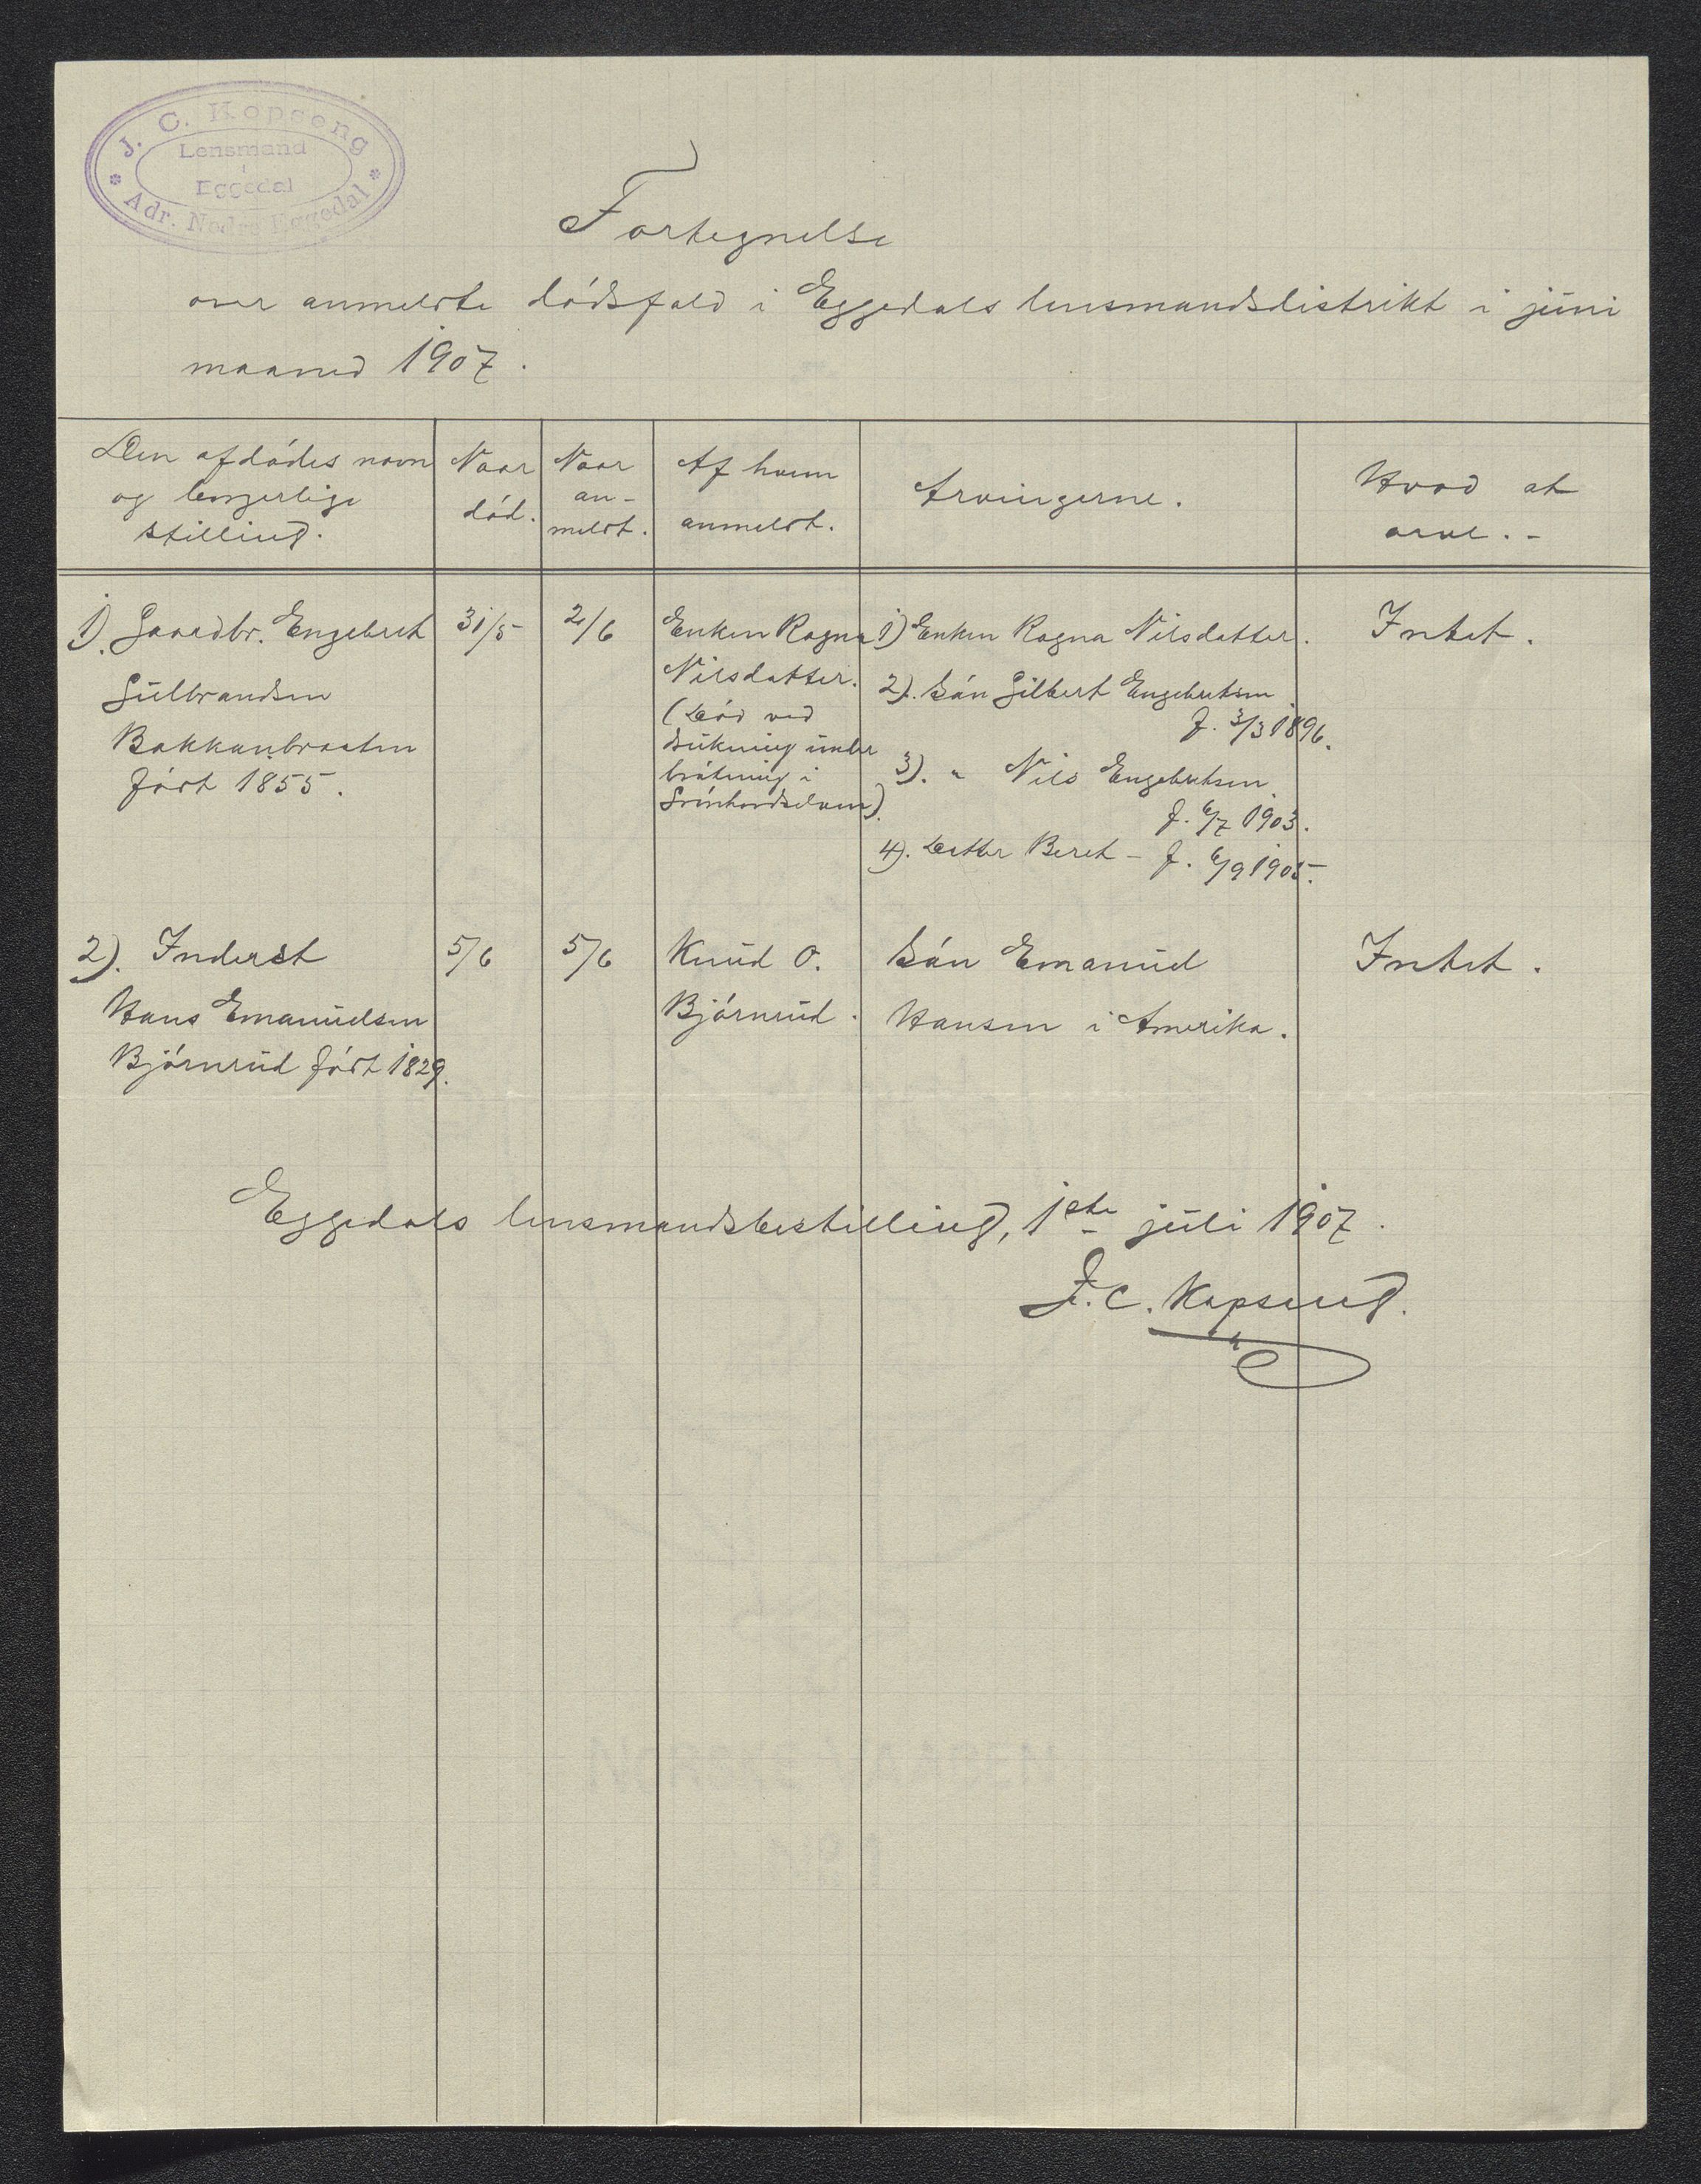 J. C. Kopseng
Lensmand
i
Eggedal
Adr. Nedre Eggedal
Fortegnelse
over anmeldte dödsfald i Eggedals lensmandsdistrikt i juni
maaned 1907.
Den afdödes navn
og borgerlige
stilling.
Naar
död.
Naar
an-
meldt.
Af hvem
anmeldt.
Arvingerne.
Hvad at
arve. -
1). Gaardbr. Engebret
Gulbrandsen
Bakkenbraaten
född 1855.
31/5
2/6
Enken Ragna
Nilsdatter.
(Död ved
drukning under
brötning i
1) Enken Ragna Nilsdatter.
2). Sön Gilbert Engebretsen
f. 3/3 1896.
3). " Nils Engebretsen
f. 6/7 1903.
4). Datter Beret - f. 6/9 1905.
Intet.
2). Inderst
Hans Emanuelsen
Björnrud född 1829.
5/6
5/6
Knud O.
Björnrud.
Sön Emanuel
Hansen i Amerika.
Intet.
Eggedals lensmandsbestilling, 1ste juli 1907.
J. C. Kopseng.